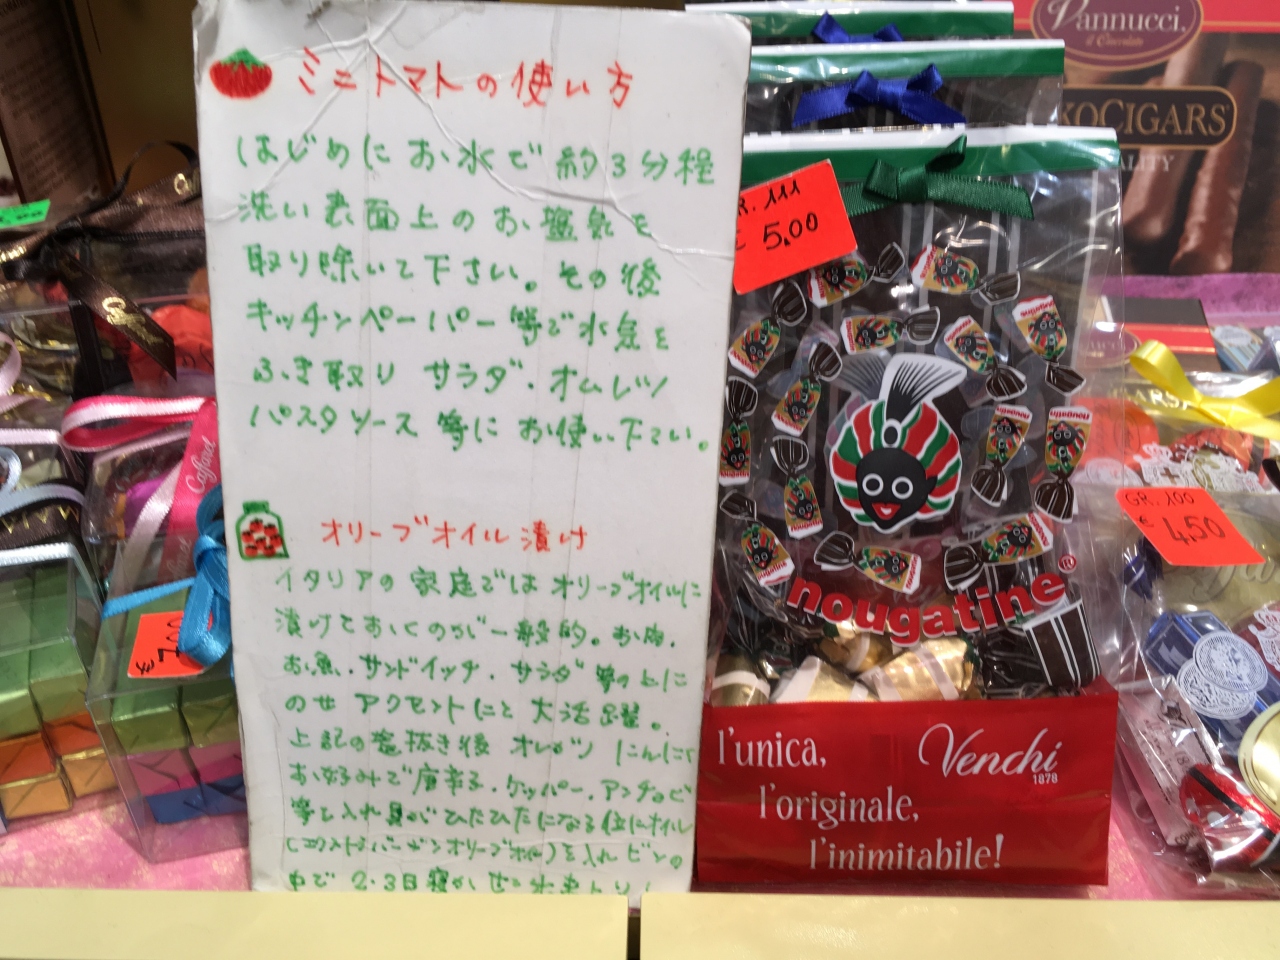 ミニトマトの使い方
はじめにお水で約3分程
洗い表面上のお塩気を
取り除いて下さい。その後
キッチンペーパー等で水気を
ふき取り サラダ・オムレツ
パスタソース 等に お使い下さい。
オリーブオイル漬け
イタリアの家庭ではオリーブオイルに
漬けておくのが一般的。お肉.
お魚.サンドイッチ.サラダ等の上に
のせ アクセントにと大活躍。
上記の塩抜き後 オレガノ にんにく
お好みで唐辛子.ケッパー.アンチョビ
等と入れ具がひたひたになる位にオイル
(エクストラバージンオリーブオイル)を入れ ビンの
中で 2.3日寝かせ
GR. 111
€ 5.00
nougatine®
l'unica,
Venchi
1878
l'originale,
l'inimitabile!
Vannucci
il Cioccolato
KOCIGARS
ALITY
GR. 100
€ 4.50
Caffarel